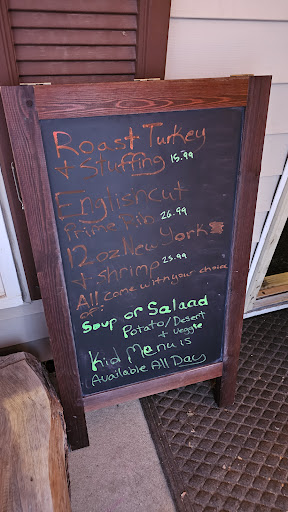 Roast Turkey
+ Stuffing 15.99
English cut
Prime Rib 26.99
12oz New York
+ shrimp 23.99
All come with your choice
of:
Soup or Salaad
Potato/Desert
+ Veggie
Kid Menu is
Available All Day